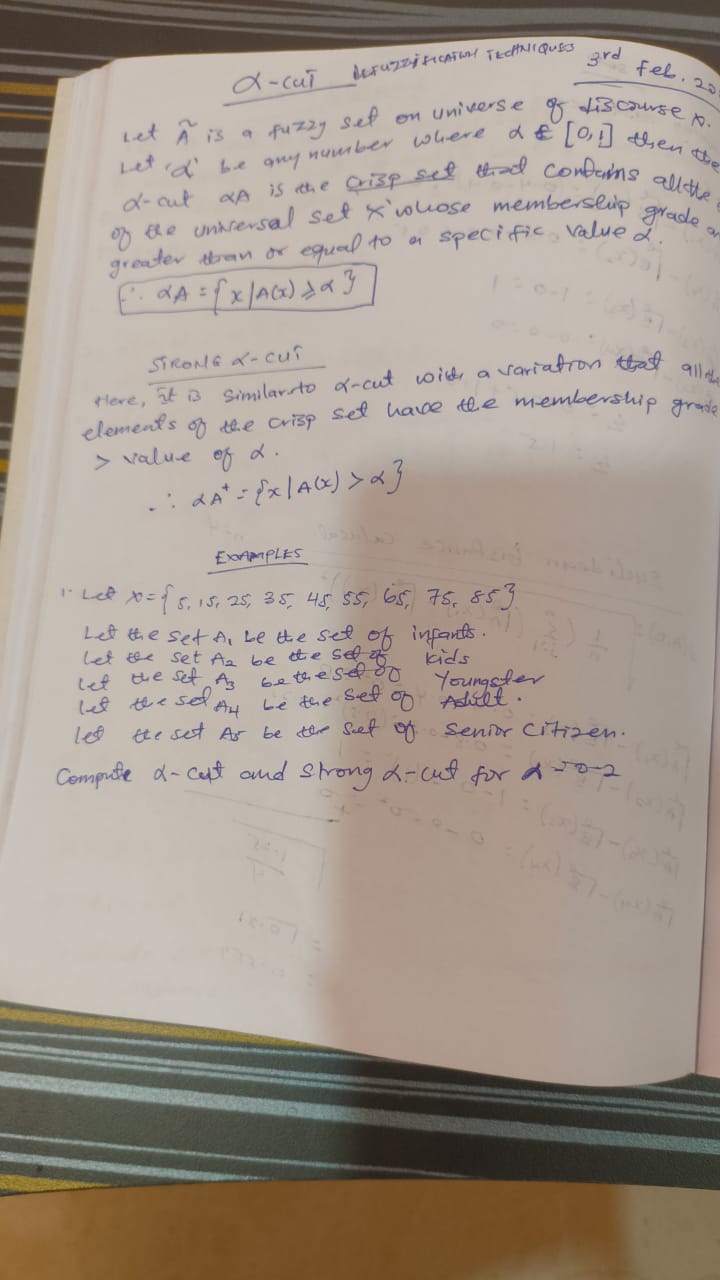 α-cut DEFUZZIFICATION TECHNIQUES 3rd Feb. 20
Let Ã is a fuzzy set on universe of discourse X.
Let 'α' be any number where α ∈ [0,1] then the
α-cut αA is the crisp set that contains all the
of the universal set 'X' whose membership grade
greater than or equal to a specific value α.
∴ αA = {x | A(x) ≥ α}
STRONG α-CUT
Here, it is similar to α-cut with a variation that all the
elements of the crisp set have the membership grade
> value of α.
∴ αA⁺ = {x | A(x) > α}
EXAMPLES
1. Let X = {5, 15, 25, 35, 45, 55, 65, 75, 85}
Let the set A₁ be the set of infants.
Let the set A₂ be the set of kids
Let the set A₃ be the set of Youngster
Let the set A₄ be the set of Adult.
Let the set A₅ be the set of Senior Citizen.
Compute α-cut and strong α-cut for α = 0.2